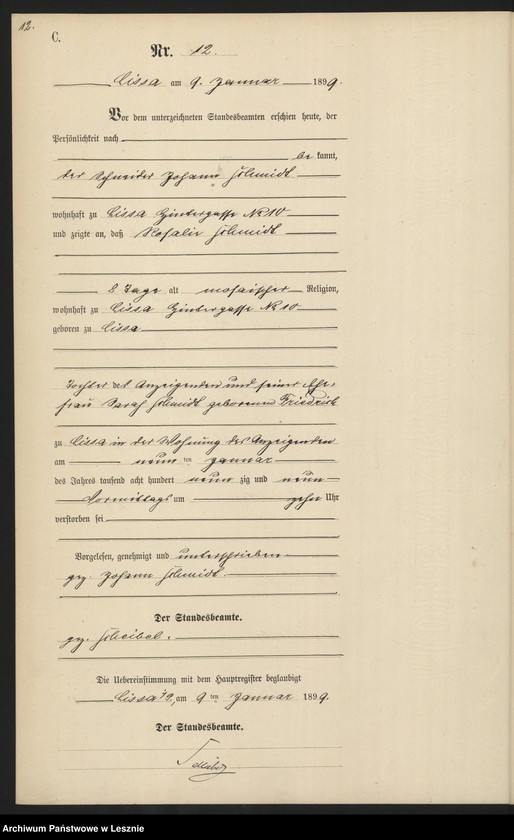 12.
C.
Nr. 12.
Lissa am 9. Januar 1899.
Vor dem unterzeichneten Standesbeamten erschien heute, der
Persönlichkeit nach
be kannt,
der Schneider Johann Schmidt
wohnhaft zu Lissa Hintergasse No 10
und zeigte an, daß Rosalie Schmidt
8 Tage alt mosaischer Religion,
wohnhaft zu Lissa Hintergasse No 10
geboren zu Lissa
Tochter des Anzeigenden und seiner Ehe-
frau Sarah Schmidt geborenen Friedrich
zu Lissa in der Wohnung des Anzeigenden
am neun ten Januar
des Jahres tausend acht hundert neun zig und neun
Vormittags um zehn Uhr
verstorben sei
Vorgelesen, genehmigt und unterschrieben
gez. Johann Schmidt.
Der Standesbeamte.
gez. Scheibel.
Die Uebereinstimmung mit dem Hauptregister beglaubigt
Lissa am 9 ten Januar 1899.
Der Standesbeamte.
Archiwum Państwowe w Lesznie